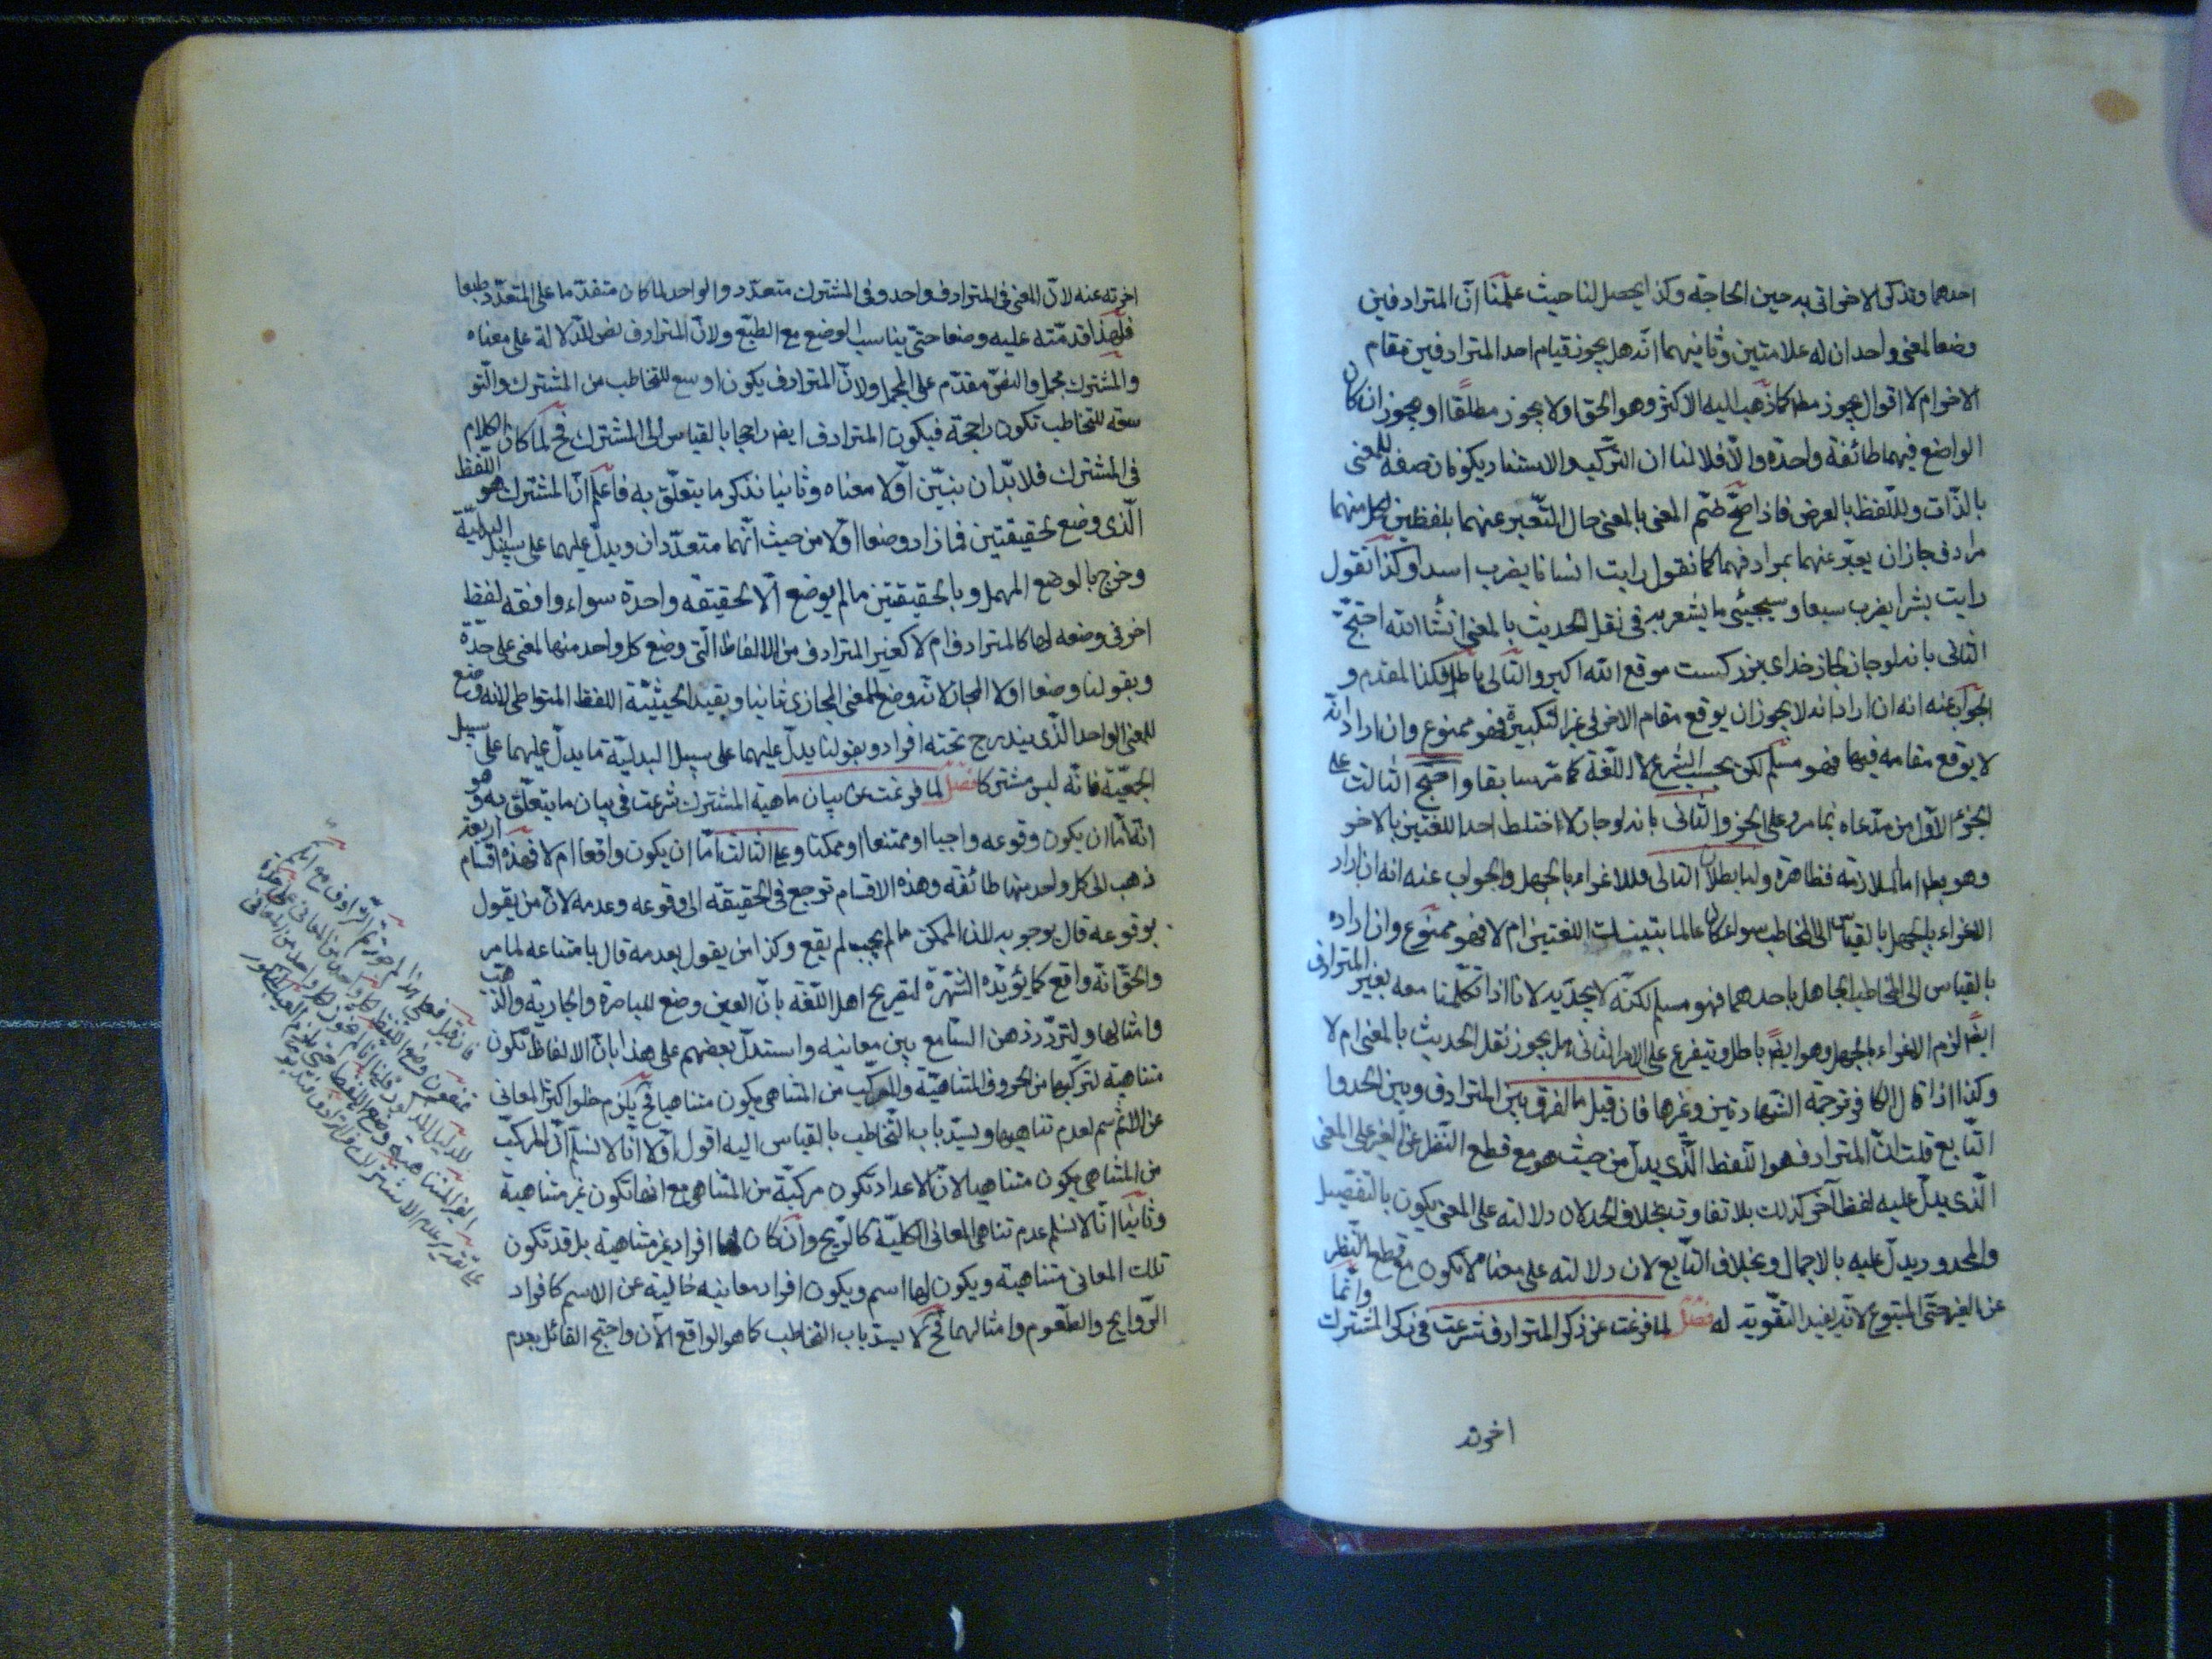 احدهما وتذكر الاخر اتى به حين الحاجة وكذا يحصل لنا حيث علمنا انّ المترادفين
وضعا لمعنى واحد ان له علامتين وثانيهما انّه هل يجوز قيام احد المترادفين مقام
الاخر ام لا اقوال يجوز مطلقا كما ذهب اليه الاكثر وهو الحق اولا يجوز مطلقًا او يجوز ان كان
الواضع فيهما طائفة واحدة والّا فلا لنا ان التّركيب والاسناد يكونان صفة للمعنى
بالذّات وللّفظ بالعرض فاذا صحّ ضمّ المعنى بالمعنى حال التّعبير عنهما بلفظين لكل منهما
مرادف جاز ان يعبّر عنهما بمرادفهما كما نقول رايت انسانا يضرب اسدا وكذا نقول
رايت بشرا يضرب سبعا وسيجيئ ما يشعر به فى نقل الحديث بالمعنى انشاالله احتجّ
الثانى بانه لو جاز لجاز خداى بزركست موقع الله اكبر والتّالى باطل فكذا المقدم و
الجواب عنه انه ان اراد انه لا يجوز ان يوقع مقام الاخر فى غير التكبيرة فهو ممنوع وان اراد انه
لا يوقع مقامه فيها فهو مسلّم لكن بحسب الشّرع لا اللّغة كما مرّ سابقا واحتجّ الثالث على
الجزء الاوّل من مدّعاه بما مر وعلى الجزء الثّانى بانه لو جاز لاختلط احد اللغتين بالاخر
وهو بط اما الملازمة فظاهرة واما بطلان التالى فللاغراء بالجهل والجواب عنه انه ان اراد
الاغراء بالجهل بالقياس الى المخاطب سواء كان عالما بتينك اللغتين ام لا فهو ممنوع وان اراده
بالقياس الى المخاطب الجاهل باحدهما فهو مسلم لكنّه لا يجديه لانّا اذا تكلّمنا معه بغير المترادف
ايضًا لزم الاغراء بالجهل وهو ايضًا باطل ويتفرع على الامر الثانى هل يجوز نقل الحديث بالمعنى ام لا
وكذا اذا قال الكافر ترجمة الشّهادتين وغيرها فان قيل ما الفرق بين المترادف وبين الحد وا
التّابع قلت انّ المترادف هو اللّفظ الّذى يدلّ من حيث هو مع قطع النّظر عن الغير على المعنى
الّذى يدلّ عليه لفظ آخر كذلك بلا تفاوت بخلاف الحد لان دلالته على المعنى يكون بالتفصيل
والمحدود يدلّ عليه بالاجمال وبخلاف التّابع لان دلالته على معناه لا تكون مع قطع النّظر
عن الغير حتّى المتبوع لانّه يفيد التقوية له فصل لما فرغت عن ذكر المترادف شرعت فى ذكر المشترك وانّما
اخرته
اخرته عنه لانّ المعنى فى المترادف واحد وفى المشترك متعدّد والواحد لما كان متقدّما على المتعدّد طبعا
فلهذا قدمّته عليه وضعا حتّى يناسب الوضع مع الطبّع ولانّ المترادف نص للدّلالة على معناه
والمشترك مجمل والنصّ مقدّم على المجمل ولانّ المترادف يكون اوسع للتخاطب من المشترك والتّو
سعة للتخاطب تكون راجحة فيكون المترادف ايض راجحا بالقياس الى المشترك فح لما كان الكلام
فى المشترك فلا بدّ ان نبيّن اوّلا معناه وثانيا نذكر ما يتعلّق به فاعلم انّ المشترك هو اللّفظ
الّذى وضع لحقيقتين فما زاد وضعا اوّلا من حيث انّهما متعدّدان ويدلّ عليهما على سبيل البدليّة
وخرج بالوضع المهمل وبالحقيقتين ما لم يوضع الّا لحقيقة واحدة سواء وافقه لفظ
اخر فى وضعه لها كالمترادف ام لا كغير المترادف من الالفاظ الّتى وضع كل واحد منها لمعنى على حدّة
وبقولنا وضعا اولا المجاز لانّه وضع للمعنى المجازى ثانيا وبقيد الحيثيّة اللفظ المتواطى لانه وضع
للمعنى الواحد الّذى يندرج تحته افراد وبقولنا يدلّ عليهما على سبيل البدليّة ما يدلّ عليهما على سبيل
الجمعيّة فانّه ليس مشتركا فصل لما فرغت عن بيان ماهية المشترك شرعت فى بيان ما يتعلّق به وهو
انّه امّا ان يكون وقوعه واجبا او ممتنعا او ممكنا وعلى الثالث امّا ان يكون واقعا ام لا فهذه اقسام اربعة
ذهب الى كل واحد منها طائفة وهذه الاقسام ترجع فى الحقيقة الى وقوعه وعدمه لانّ من يقول
بوقوعه قال بوجوبه لان الممكن ما لم يجب لم يقع وكذا من يقول بعدمه قال بامتناعه لما مر
والحقّ انّه واقع كما يؤيّده الشّهرة لتصريح اهل اللّغة بانّ العين وضع للباصرة والجارية والذّهب
وامثالها ولتردّد ذهن السّامع بين معانيه واستدلّ بعضهم على هذا بانّ الالفاظ تكون
متناهية لتركّبها من الحروف المتناهيّة والمركّب من المتناهى يكون متناهيا فح يلزم خلو اكثر المعانى
عن الاسم لعدم تناهيها ويسدّ باب التّخاطب بالقياس اليه اقول اوّلا انّا لا نسلّم انّ المركّب
من المتناهى يكون متناهيا لانّ الاعداد تكون مركّبة من المتناهى مع انها تكون غير متناهية
وثانيًا انّا لا نسلم عدم تناهى المعانى الكليّة كالرّيح وان كان لها افراد غير متناهية بل قد تكون
تلك المعانى متناهية ويكون لها اسم ويكون افراد معانيه خالية عن الاسم كافراد
الرّوايح والطّعوم وامثالهما فح لا يسدّ باب التخاطب كما هو الواقع الآن واحتج القائل بعدم
فان قيل فعلى هذا لم جوزتم الترادف مع انكم
تمنعون وضع اللفظ لكل واحد من المعانى على حدة